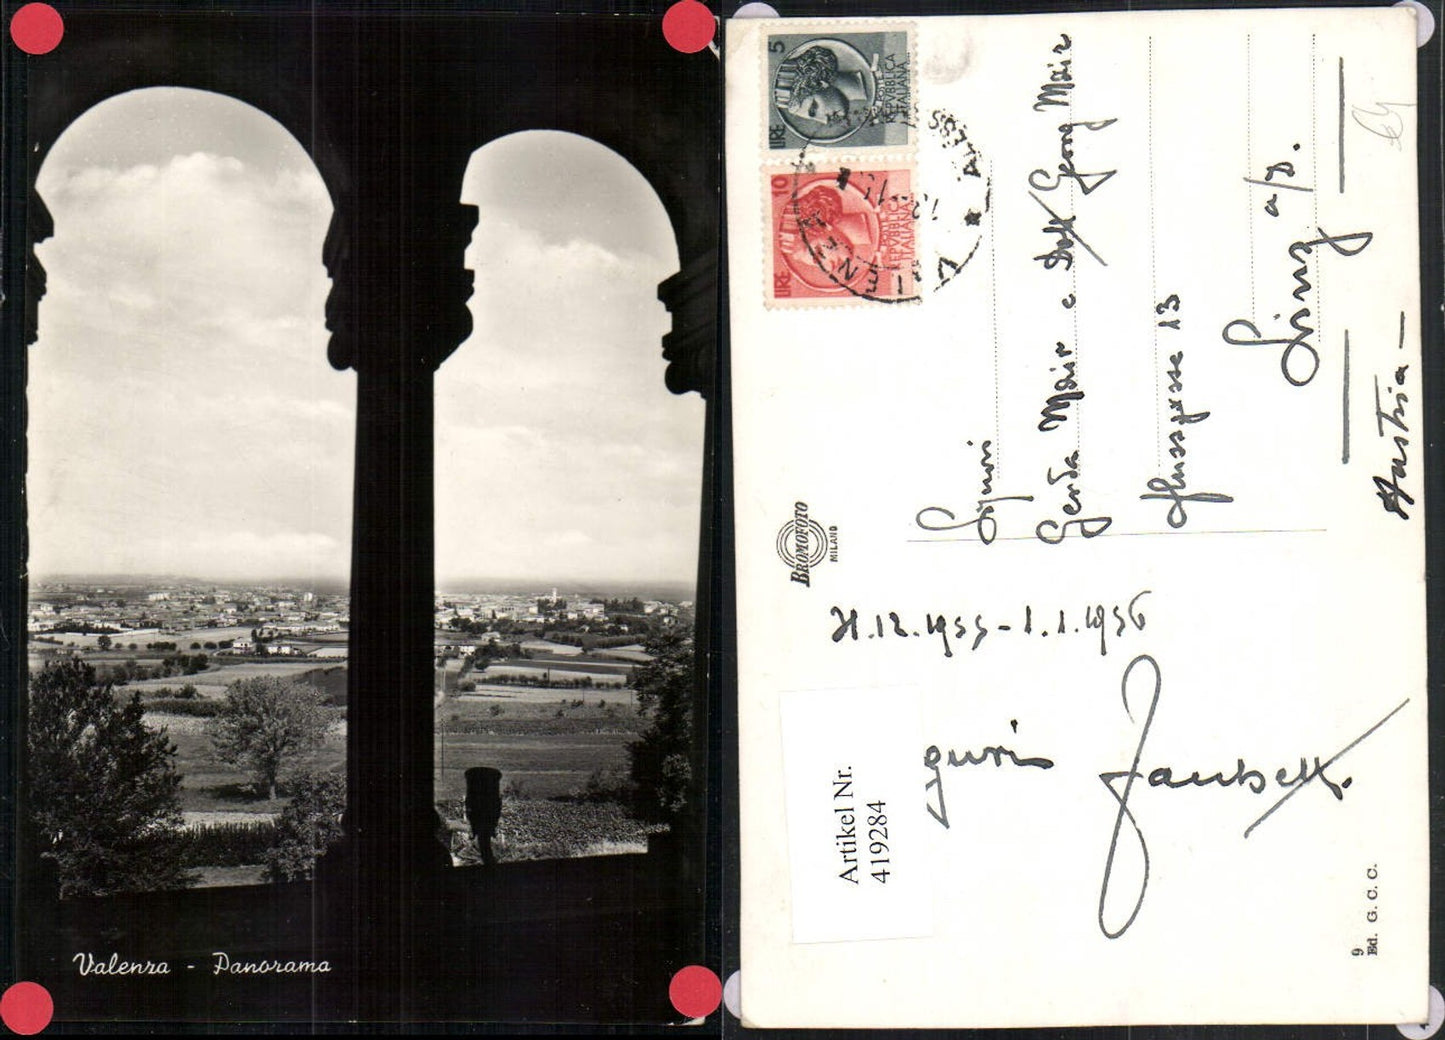 Valenza - Panorama
5
LIRE
REPVBBLICA
ITALIANA
10
LIRE
REPVBBLICA
ITALIANA
ALESS
VALENZA
Signori
Gerda Mair e Dott Georg Mair
13
Linz a/D.
Austria
BROMOFOTO
MILANO
31.12.1955 - 1.1.1956
Auguri
Artikel Nr.
419284
9
Ed. G. C. C.